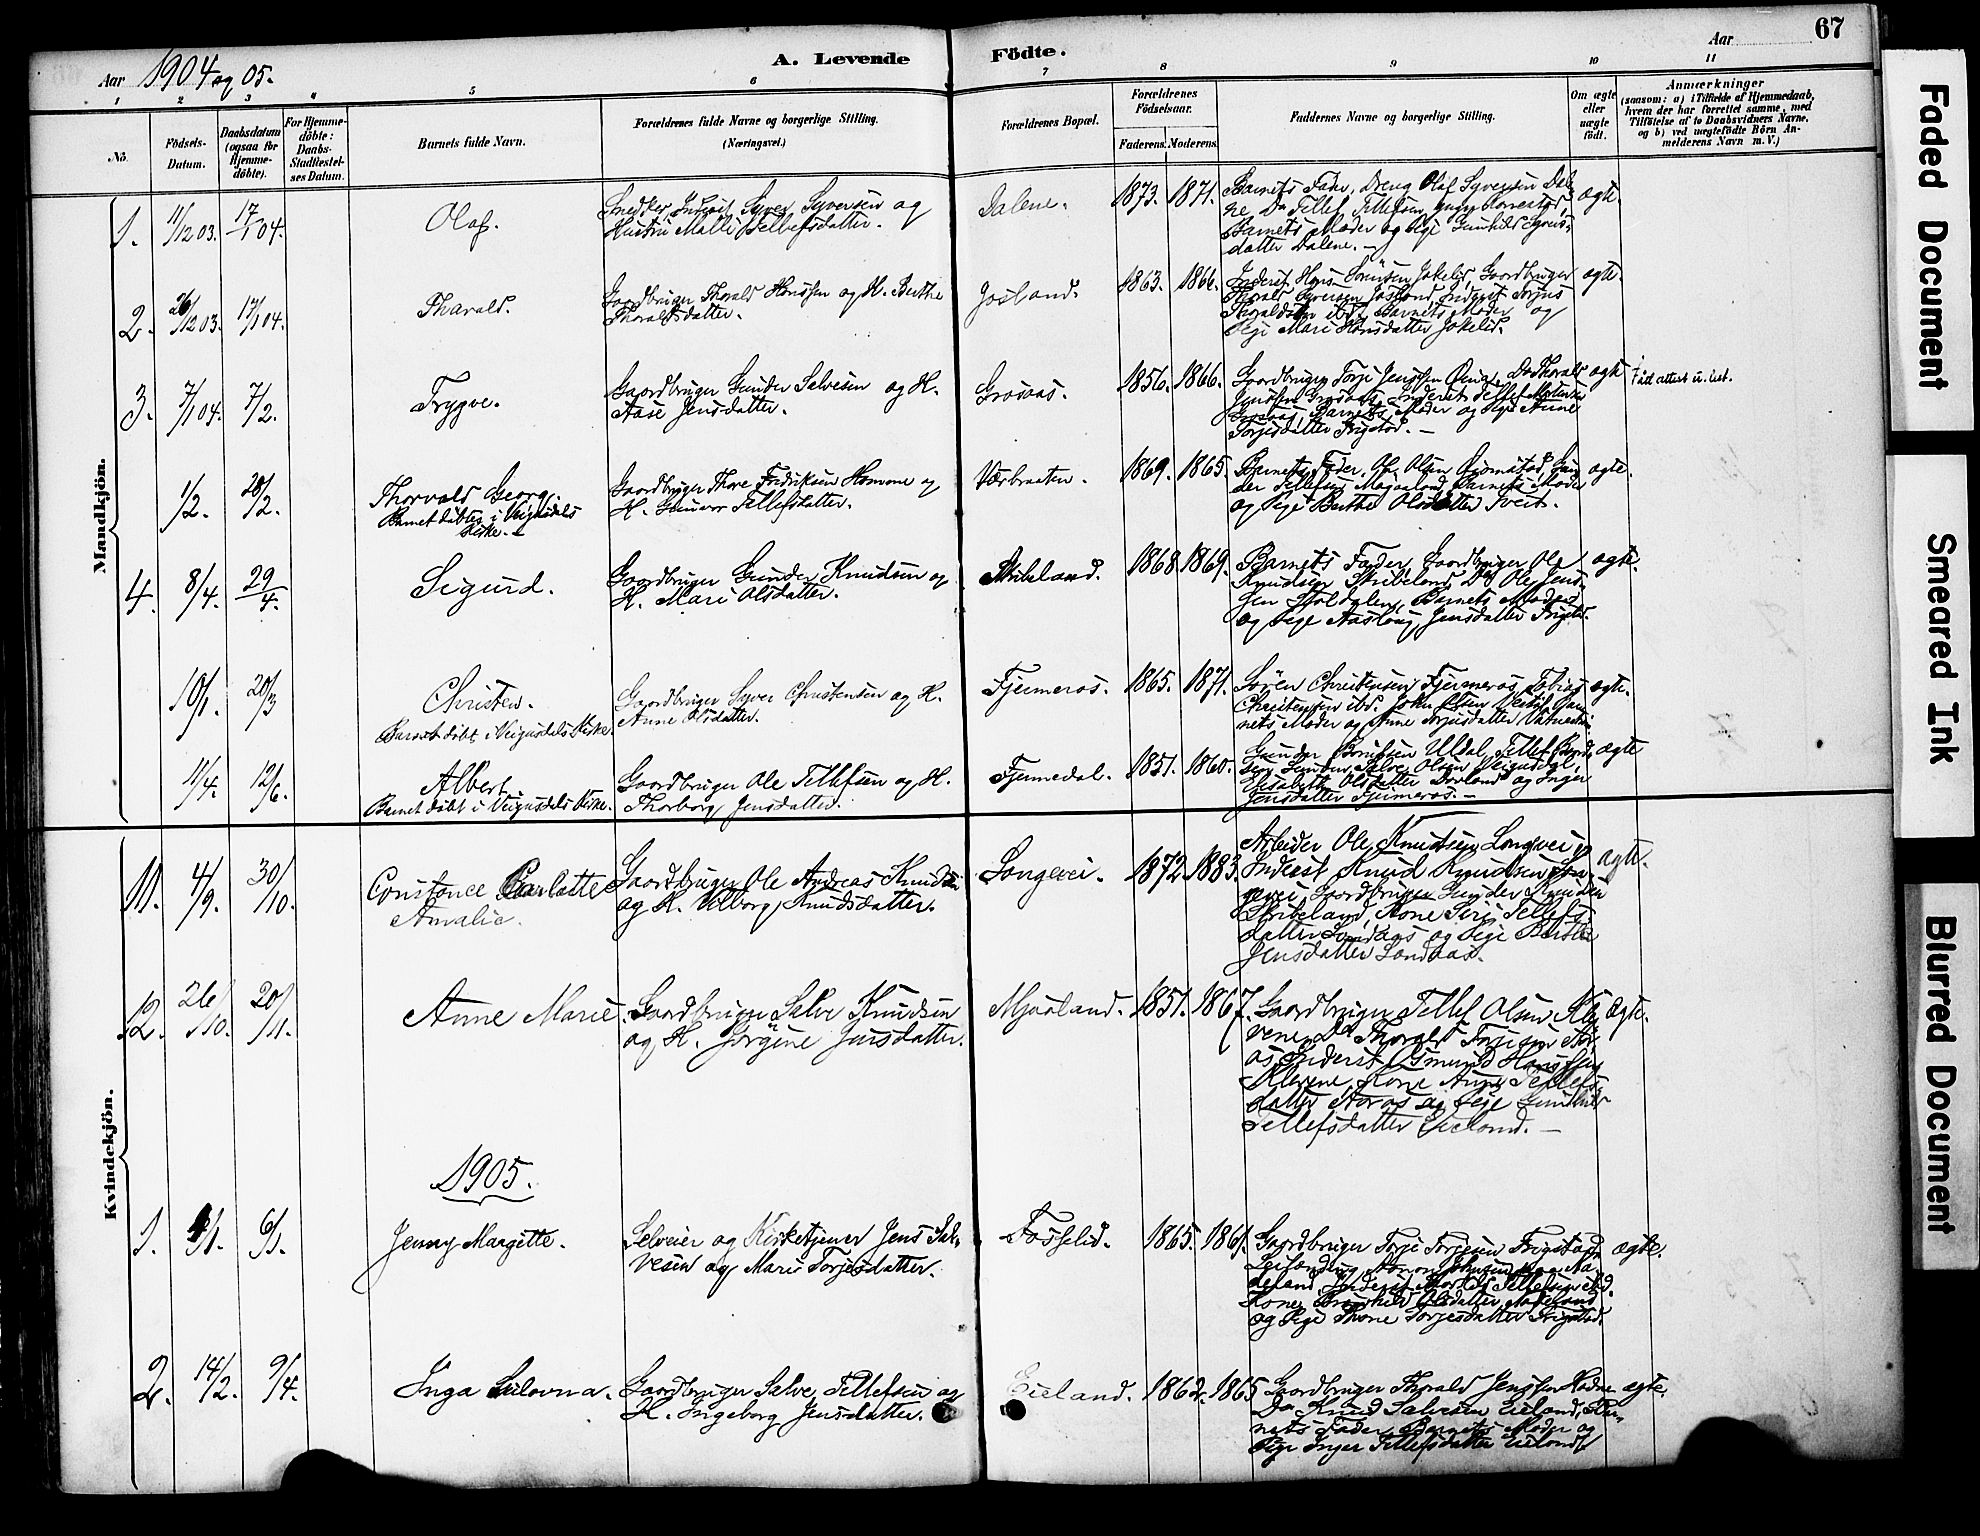 67
Aar 1904 og 05.
A. Levende Födte.
Aar
1 2 3 4 5 6 7 8 9 10 11
No.
Födsels-
Datum.
Daabsdatum
(ogsaa for
Hjemme-
döbte).
For Hjemme-
döbte:
Daabs-
Stadfæstel-
ses Datum.
Barnets fulde Navn.
Forældrenes fulde Navne og borgerlige Stilling.
(Næringsvei.)
Forældrenes Bopæl.
Forældrenes
Födselsaar.
Faderens. Moderens.
Faddernes Navne og borgerlige Stilling.
Om ægte
eller
uægte
født.
Anmærkninger
(saasom: a) i Tilfælde af Hjemmedaab,
hvem der har forrettet samme, med
Tilføielse af to Daabsvidners Navne,
og b) ved uægtefödte Börn An-
melderens Navn m. V.)
Mandkjön.
1. 11/12 03. 17/1 04. Olaf.
Snedker, Inderst Syver Syversen og
Hustru Malli Tellefsdatter.
Dalene. 1873. 1871.
Barnets Fader, Dreng Olaf Syversen Dale
ne, Do Tellef Tellefsen
Barnets Moder og Pige Gunhild Syvers-
datter Dalene. -
ægte.
2. 26/12 03. 17/1 04. Tharald.
Gaardbruger Thorald Hanssen og H. Berthe
Thoraldsdatter.
Josland. 1863. 1866.
Inderst Hans Jokelid, Gaardbruger
Thorald Syversen Josland, Inderst Torjus
Thoraldsen ibd. Barnets Moder og
Pige Mari Hansdatter Jokelid.
ægte.
3. 7/1 04. 7/2. Trygve.
Gaardbruger Gunder Salvesen og H.
Aase Jensdatter.
Grosaas. 1856. 1866.
Gaardbruger Torje Jenssen Do Thorald
Jenssen Grosaas, Inderst Tellef
Grosaas, Barnets Moder og Pige Anne
Torjesdatter Frigstad. -
ægte
Født attest u. est.
1/2. 20/2. Thorvald Georg.
Barnet döbtes i Veigusdals
Kirke. -
Gaardbruger Thore Fredriksen Homme og
H. Gunvor Tellefsdatter.
1869. 1865.
Barnets Fader, Ole Olsen Gun
der Tellefsen Barnets Moder
og Pige Berthe Olsdatter Tveit.
ægte.
4. 8/4. 29/4. Sigurd.
Gaardbruger Gunder Knudsen og
H. Mari Olsdatter.
Skibeland. 1868 1869.
Barnets Fader, Gaardbruger Ole
Knudsen Skibeland, Do Ole Jens-
sen Barnets Moder
og Pige Aaslaug Jensdatter
ægte.
10/1. 20/3 Christen.
Barnet döbt i Veigusdals Kirke.
Gaardbruger Syver Christensen og H.
Anne Olsdatter.
Fjermeros. 1865. 1871.
Sören Christensen Fjermeros, Tobias
Christensen ibd. John Olsen Bar-
nets Moder og Anne Torjusdatter
ægte.
11/4. 12/6. Albert
Barnet döbt i Veigusdals Kirke.
Gaardbruger Ole Tellefsen og H.
Thorborg Jensdatter.
Fjermedal. 1851. 1860.
Gunder Uldal, Tellef
Salve Olsen Veigusdal,
Elisabeth Olsdatter og Inger
Jensdatter Fjermeros. -
ægte
Kvindekjön.
11. 4/9. 30/10. Constance Carlotte
Amalie.
Gaardbruger Ole Andreas Knudsen
og H. Valborg Knudsdatter.
Longevei. 1872. 1883.
Arbeider Ole Knudsen Longevei,
Inderst Knud Knudsen Lon
gevei, Gaardbruger Gunder Knudsen
Skibeland, Kone Siri Tellefs-
datter Sandaas og Pige Berthe
Jensdatter Sandaas.
ægte.
12. 26/10. 20/11. Anne Marie.
Gaardbruger Salve Knudsen
og H. Jörgine Jensdatter.
Mjaaland. 1851. 1867.
Gaardbruger Tellef Olsen Kle
vene, Do Thorald Torjesen
Inderst Osmund Hanssen
Klevene, Kone Anne Tellefs-
datter og Pige Gunhild
Tellefsdatter Eieland. -
ægte.
1905.
1. 4/1. 6/1. Jenny Margitte.
Selveier og Kirketjener Jens Sal-
vesen og Mari Torjesdatter.
Fosselid. 1865. 1861.
Gaardbruger Torje Torjesen Frigstad,
Aa-
neland, Inderst Tellefsen ibd.
Kone Olsdatter
og Pige Thone Torjesdatter Frigstad.
ægte.
2. 14/2. 9/4. Inga Selovna.
Gaardbruger Salve Tellefsen og
H. Ingeborg Jensdatter.
Eieland. 1862. 1865
Gaardbruger Thorald Jenssen
Do Knud Salvesen Eieland, Bar-
nets Fader, Barnets Moder og
Pige Inger Tellefsdatter Eieland.
ægte.
Faded Document
Smeared Ink
Blurred Document